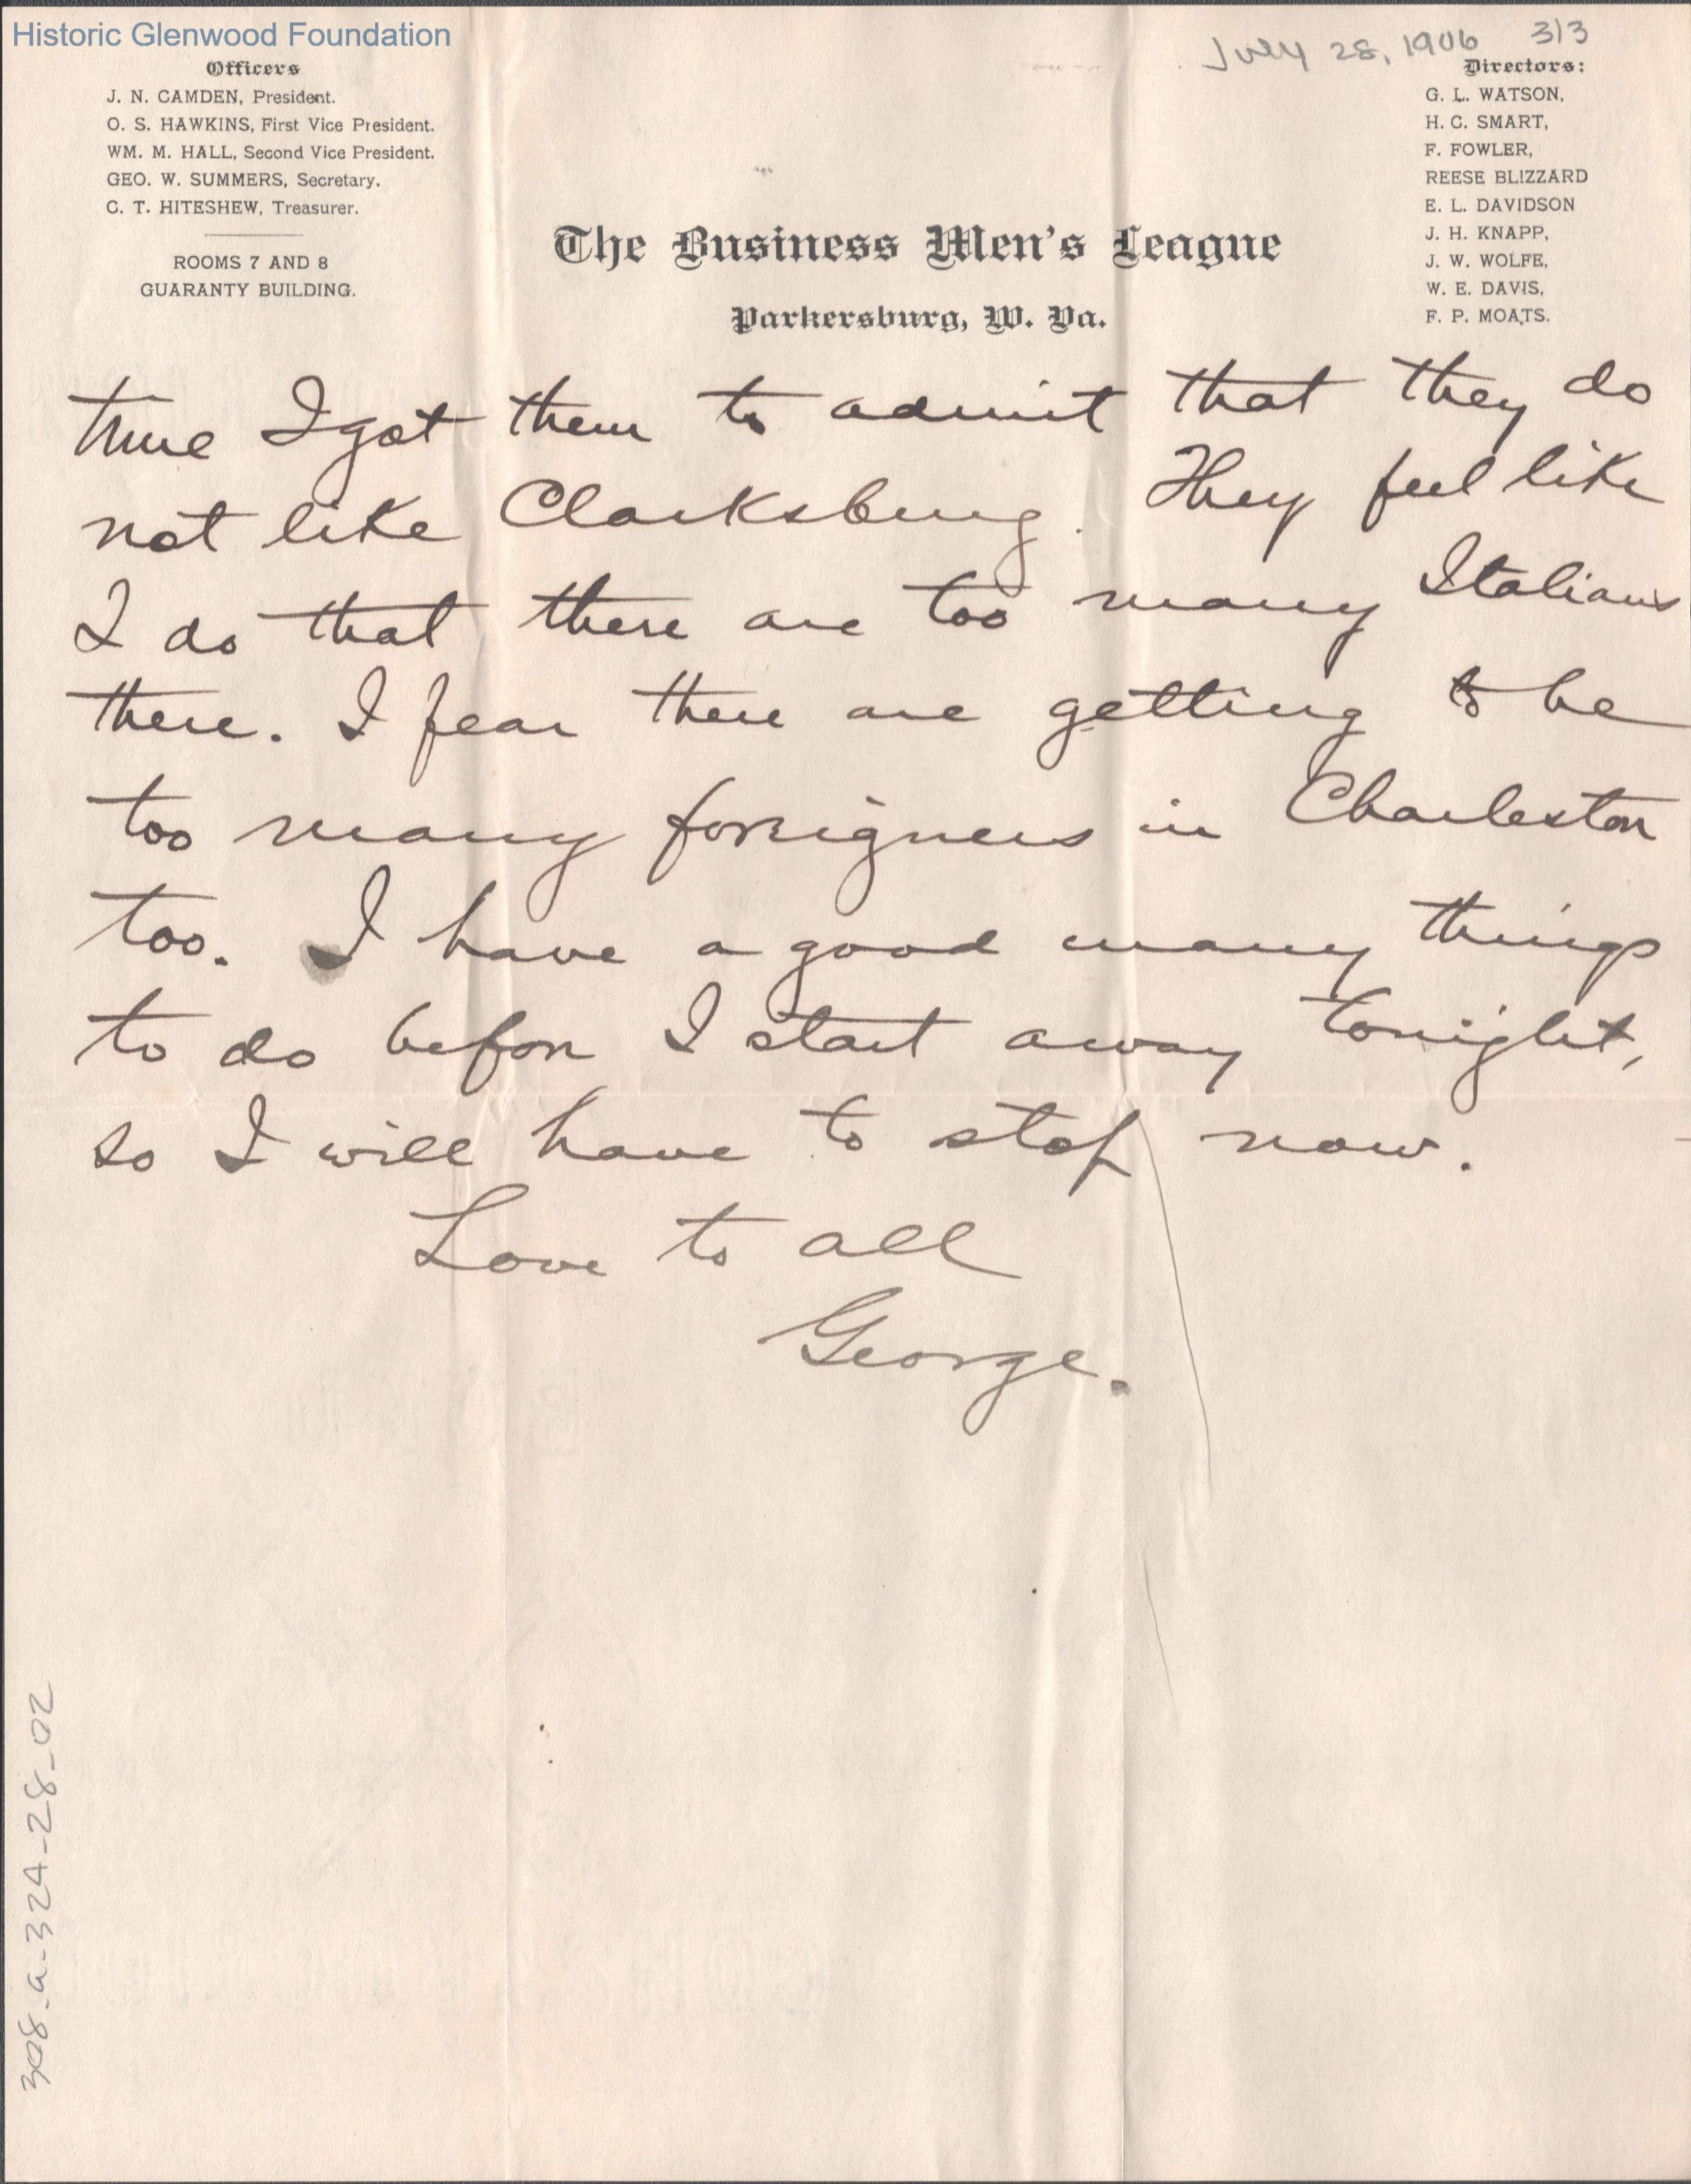 Historic Glenwood Foundation
July 28, 1906 3/3
Officers
J. N. CAMDEN, President.
O. S. HAWKINS, First Vice President.
WM. M. HALL, Second Vice President.
GEO. W. SUMMERS, Secretary.
C. T. HITESHEW, Treasurer.
ROOMS 7 AND 8
GUARANTY BUILDING.
Directors:
G. L. WATSON,
H. C. SMART,
F. FOWLER,
REESE BLIZZARD
E. L. DAVIDSON
J. H. KNAPP,
J. W. WOLFE,
W. E. DAVIS,
F. P. MOATS.
The Business Men's League
Parkersburg, W. Va.
time I got them to admit that they do
not like Clarksburg. They feel like
I do that there are too many Italians
there. I fear there are getting to be
too many foreigners in Charleston
too. I have a good many things
to do before I start away tonight,
so I will have to stop now.
Love to all
George.
308-a-324-28-02